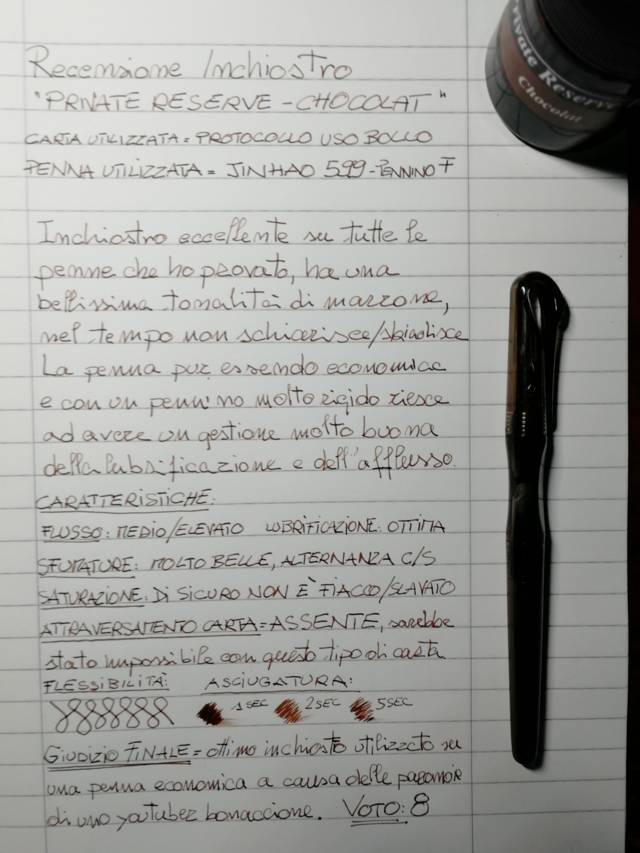 Private Reserve
Chocolat
Recensione Inchiostro
"PRIVATE RESERVE - CHOCOLAT"
CARTA UTILIZZATA = PROTOCOLLO USO BOLLO
PENNA UTILIZZATA = JINHAO 599 - PENNINO F
Inchiostro eccellente su tutte le
penne che ho provato, ha una
bellissima tonalità di marrone,
nel tempo non schiarisce/sbiadisce
La penna pur essendo economica
e con un pennino molto rigido riesce
ad avere un gestione molto buona
della lubrificazione e dell'afflusso.
CARATTERISTICHE:
FLUSSO: MEDIO/ELEVATO LUBRIFICAZIONE: OTTIMA
SFUMATURE: MOLTO BELLE, ALTERNANZA C/S
SATURAZIONE: DI SICURO NON È FIACCO/SLAVATO
ATTRAVERSAMENTO CARTA = ASSENTE, sarebbe
stato impossibile con questo tipo di carta
FLESSIBILITÀ: ASCIUGATURA:
1 SEC 2 SEC 5 SEC
GIUDIZIO FINALE = ottimo inchiostro utilizzato su
una penna economica a causa delle paranoie
di uno youtuber bonaccione. VOTO: 8